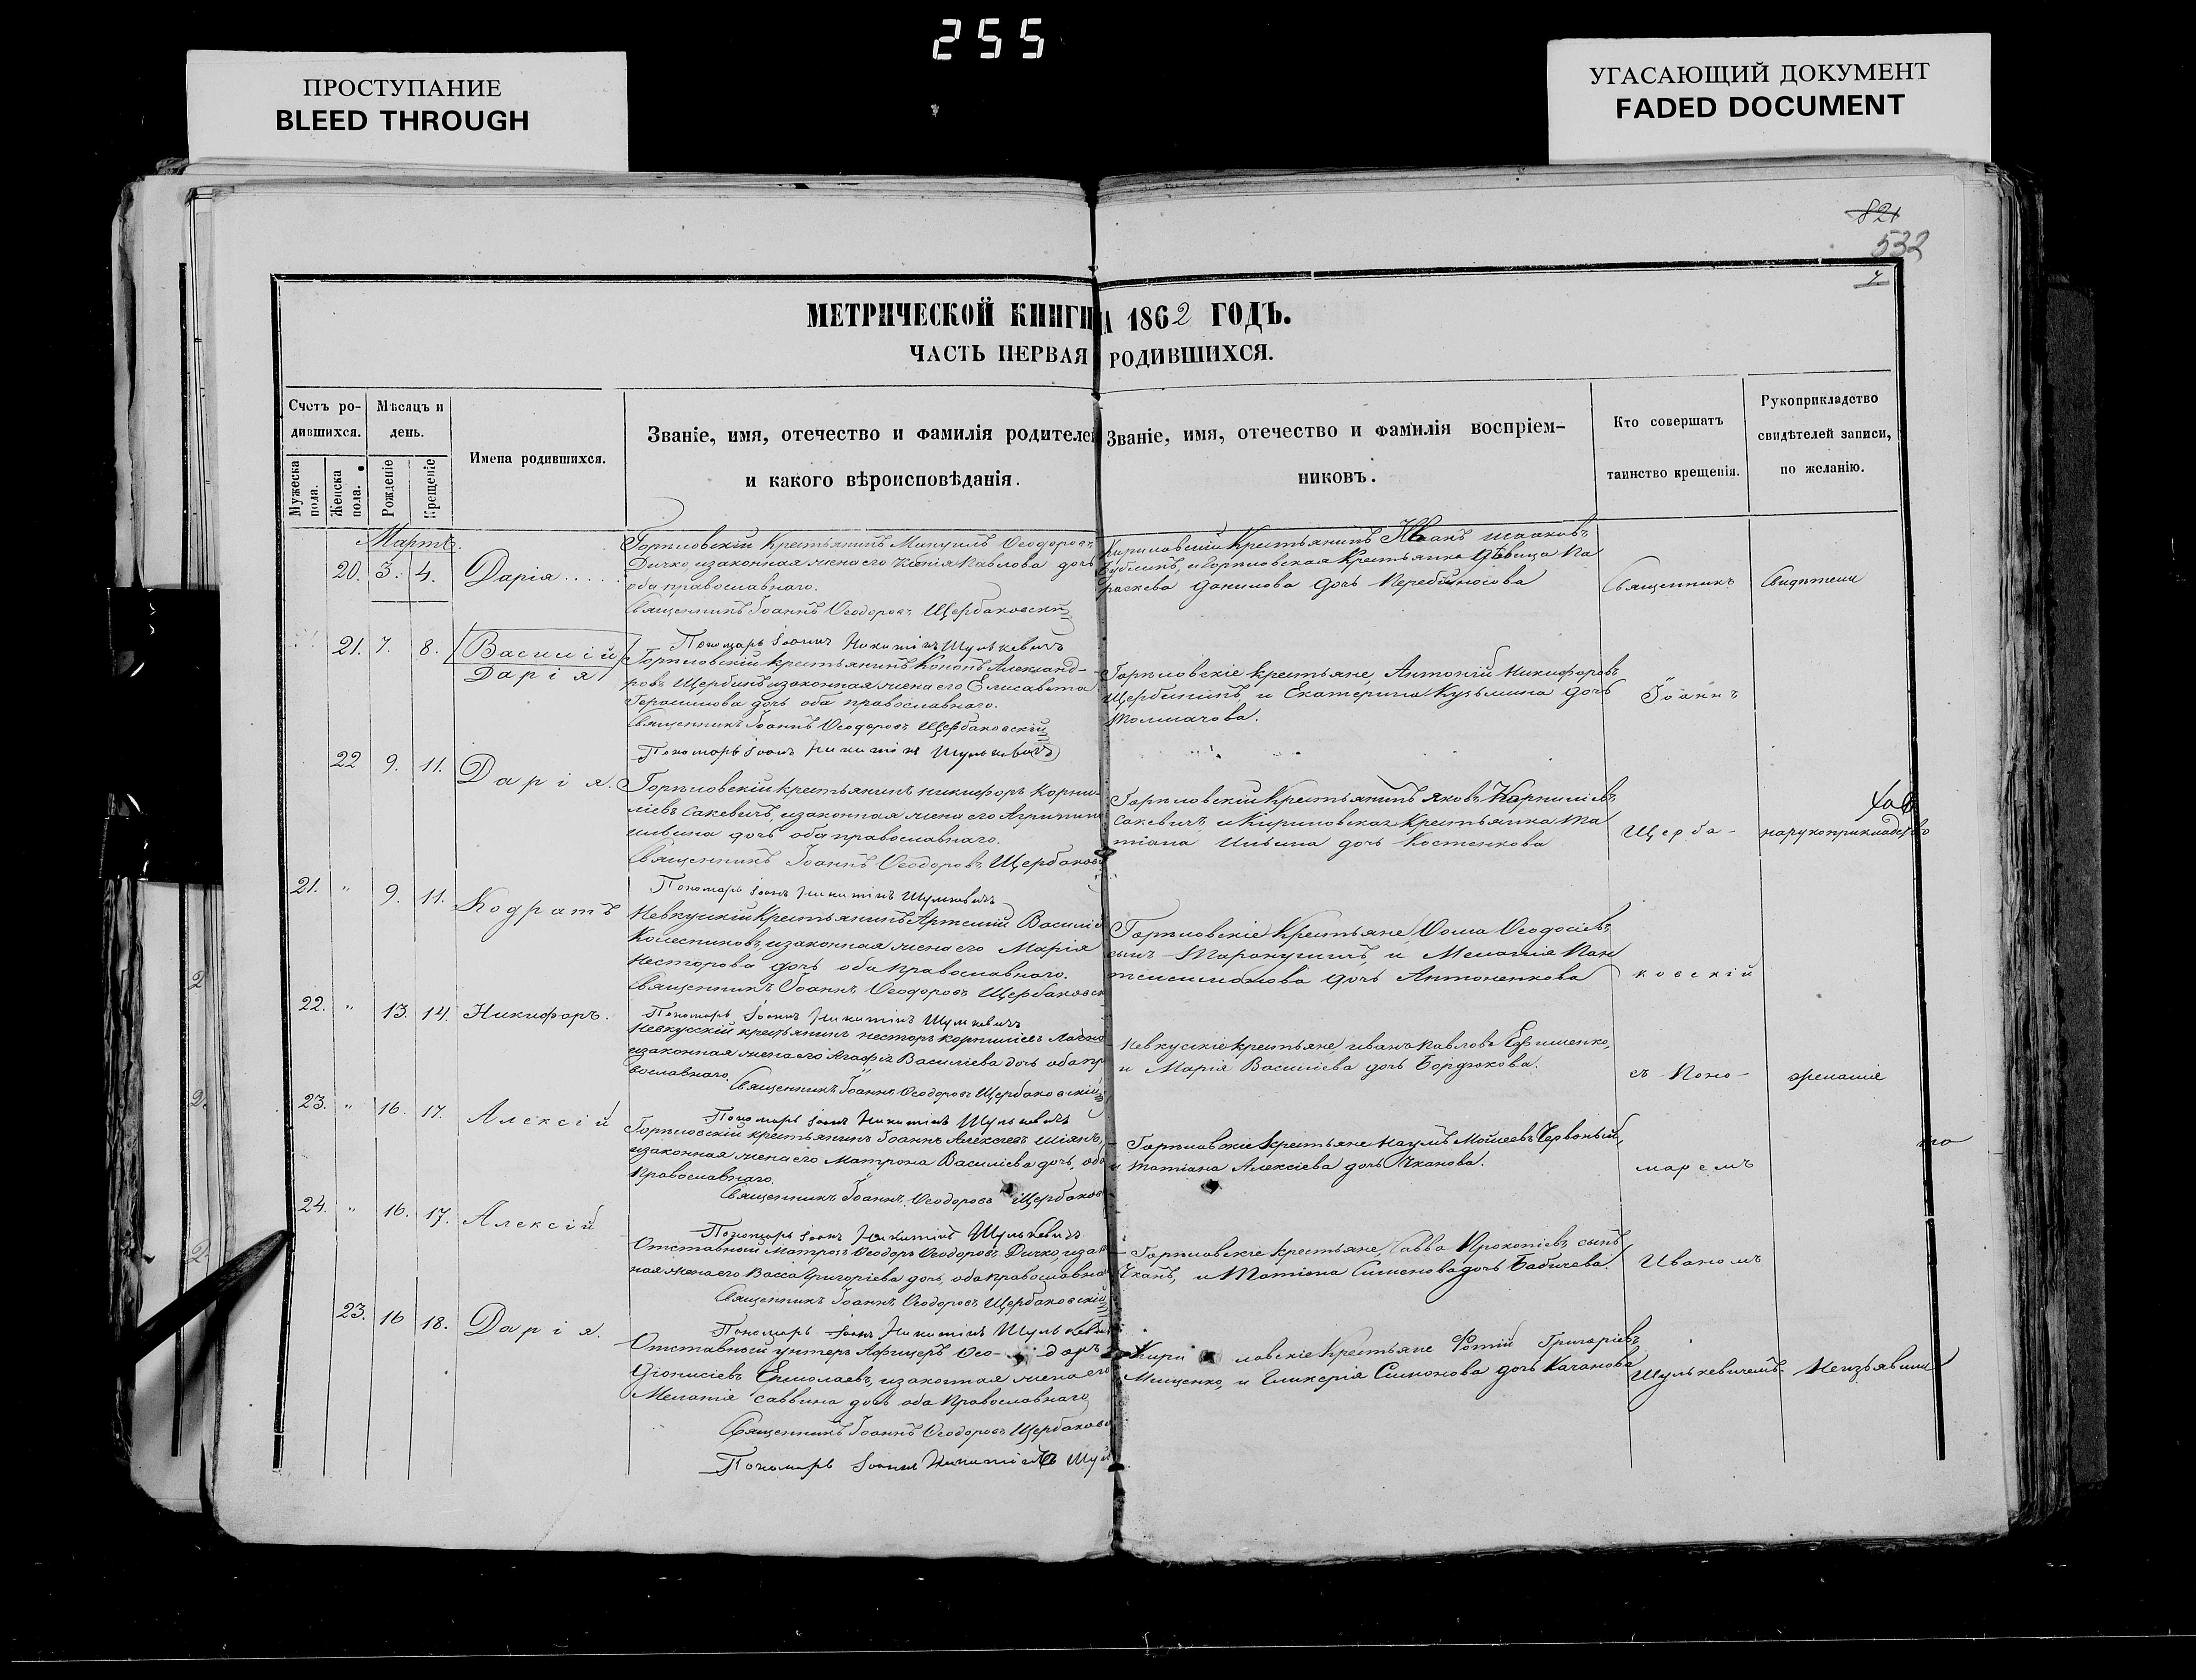 255
ПРОСТУПАНИЕ
BLEED THROUGH
УГАСАЮЩИЙ ДОКУМЕНТ
FADED DOCUMENT
821
532
7.
МЕТРИЧЕСКОЙ КНИГИ 1862 ГОДЪ.
ЧАСТЬ ПЕРВАЯ РОДИВШИХСЯ.
Счетъ ро-
дившихся.
Мужеска пола.
Женска пола.
Мѣсяцъ и
день.
Рожденіе
Крещеніе
Имена родившихся.
Званіе, имя, отечество и фамилія родителей
и какого вѣроисповѣданія.
Званіе, имя, отечество и фамилія воспріем-
никовъ.
Кто совершатъ
таинство крещенія.
Рукоприкладство
свидѣтелей записи,
по желанію.
Мартъ.
20. 3. 4. Дарія
Горѣловскій Крестьянинъ Мануилъ Ѳеодоровъ
Дичко, и законная жена его Ксенія Павлова дочь
оба православнаго.
Священникъ Іоаннъ Ѳеодоровъ Щербаковскій
Пономарь Іоаннъ Никитинъ Шулькевичъ
Кириловскій Крестьянинъ Иванъ Исааковъ
и Горѣловская Крестьянка дѣвица Па
раскева Данилова дочь
Священникъ
Свидѣтели
21. 7. 8. Василій
Дарія
Горѣловскій крестьянинъ Кононъ Александ-
ровъ Щербинъ и законная жена его Елисавета
Герасимова дочь оба православнаго.
Священникъ Іоаннъ Ѳеодоровъ Щербаковскій
Пономарь Іоаннъ Никитинъ Шулькевичъ
Горѣловскіе крестьяне, Антоній Никифоровъ
Щербининъ, и Екатерина Кузьмина дочь
Толмачова.
Іоаннъ
22 9. 11. Дарія.
Горѣловскій крестьянинъ Никифоръ Корни-
ліевъ Сакевичъ, и законная жена его
Ильина дочь оба православнаго.
Священникъ Іоаннъ Ѳеодоровъ Щербаковс
Пономарь Іоаннъ Никитинъ Шулькевичъ
Горѣловскій Крестьянинъ Яковъ Корниліевъ
Сакевичъ, и Кириловская Крестьянка Та
тіана Ильина дочь Костенкова
Щерба-
на рукоприкладство
21. " 9. 11. Кодратъ
Невкусскій Крестьянинъ Артемій
Колесниковъ, и законная жена его Марія
Несторова дочь оба православнаго.
Священникъ Іоаннъ Ѳеодоровъ Щербаковск
Пономарь Іоаннъ Никитинъ Шулькевичъ
Горѣловскіе Крестьяне, Ѳома Ѳеодосіевъ
сынъ и Меланія Пан
дочь Антоненкова
ковскій
22. " 13. 14. Никифоръ.
Невкусскій крестьянинъ Несторъ Корниліевъ
и законная жена его Агафія Василіева дочь оба пра
вославнаго. Священникъ Іоаннъ Ѳеодоровъ Щербаковскій
Пономарь Іоаннъ Никитинъ Шулькевичъ
Невкусскіе крестьяне, Иванъ Павловъ Ефименко,
и Марія Василіева дочь Бордюкова.
съ Поно-
желанія
23. " 16. 17. Алексій
Горѣловскій крестьянинъ Іоаннъ Алексіевъ
и законная жена его Матрона Василіева дочь, оба
православнаго.
Священникъ Іоаннъ Ѳеодоровъ Щербаков
Пономарь Іоаннъ Никитинъ Шулькевичъ
Горѣловскіе крестьяне Наумъ Моисеевъ Червоный,
и Татіана Алексіева дочь Чканова.
маремъ
24. " 16. 17. Алексій
Отставной Матросъ Ѳеодоръ Ѳеодоровъ Дичко, и закон
ная жена его Васса Григоріева дочь, оба православна
Священникъ Іоаннъ Ѳеодоровъ Щербаковскій
Пономарь Іоаннъ Никитинъ Шулькевичъ
Горѣловскіе крестьяне, Савва Прокопіевъ сынъ
Чканъ, и Татіана Симеонова дочь Бабичева.
Иваномъ
23. 16 18. Дарія.
Отставной унтеръ Афицеръ Ѳео-доръ
Діонисіевъ Ермолаевъ, и законная жена его
Меланія Саввина дочь оба православнаго
Священникъ Іоаннъ Ѳеодоровъ Щербаковс
Пономарь Іоаннъ Никитинъ Шул
Кириловскіе Крестьяне Фотій Григоріевъ
Мищенко, и Гликерія Симонова дочь Качанова
Шулькевичемъ.
Неизъявили